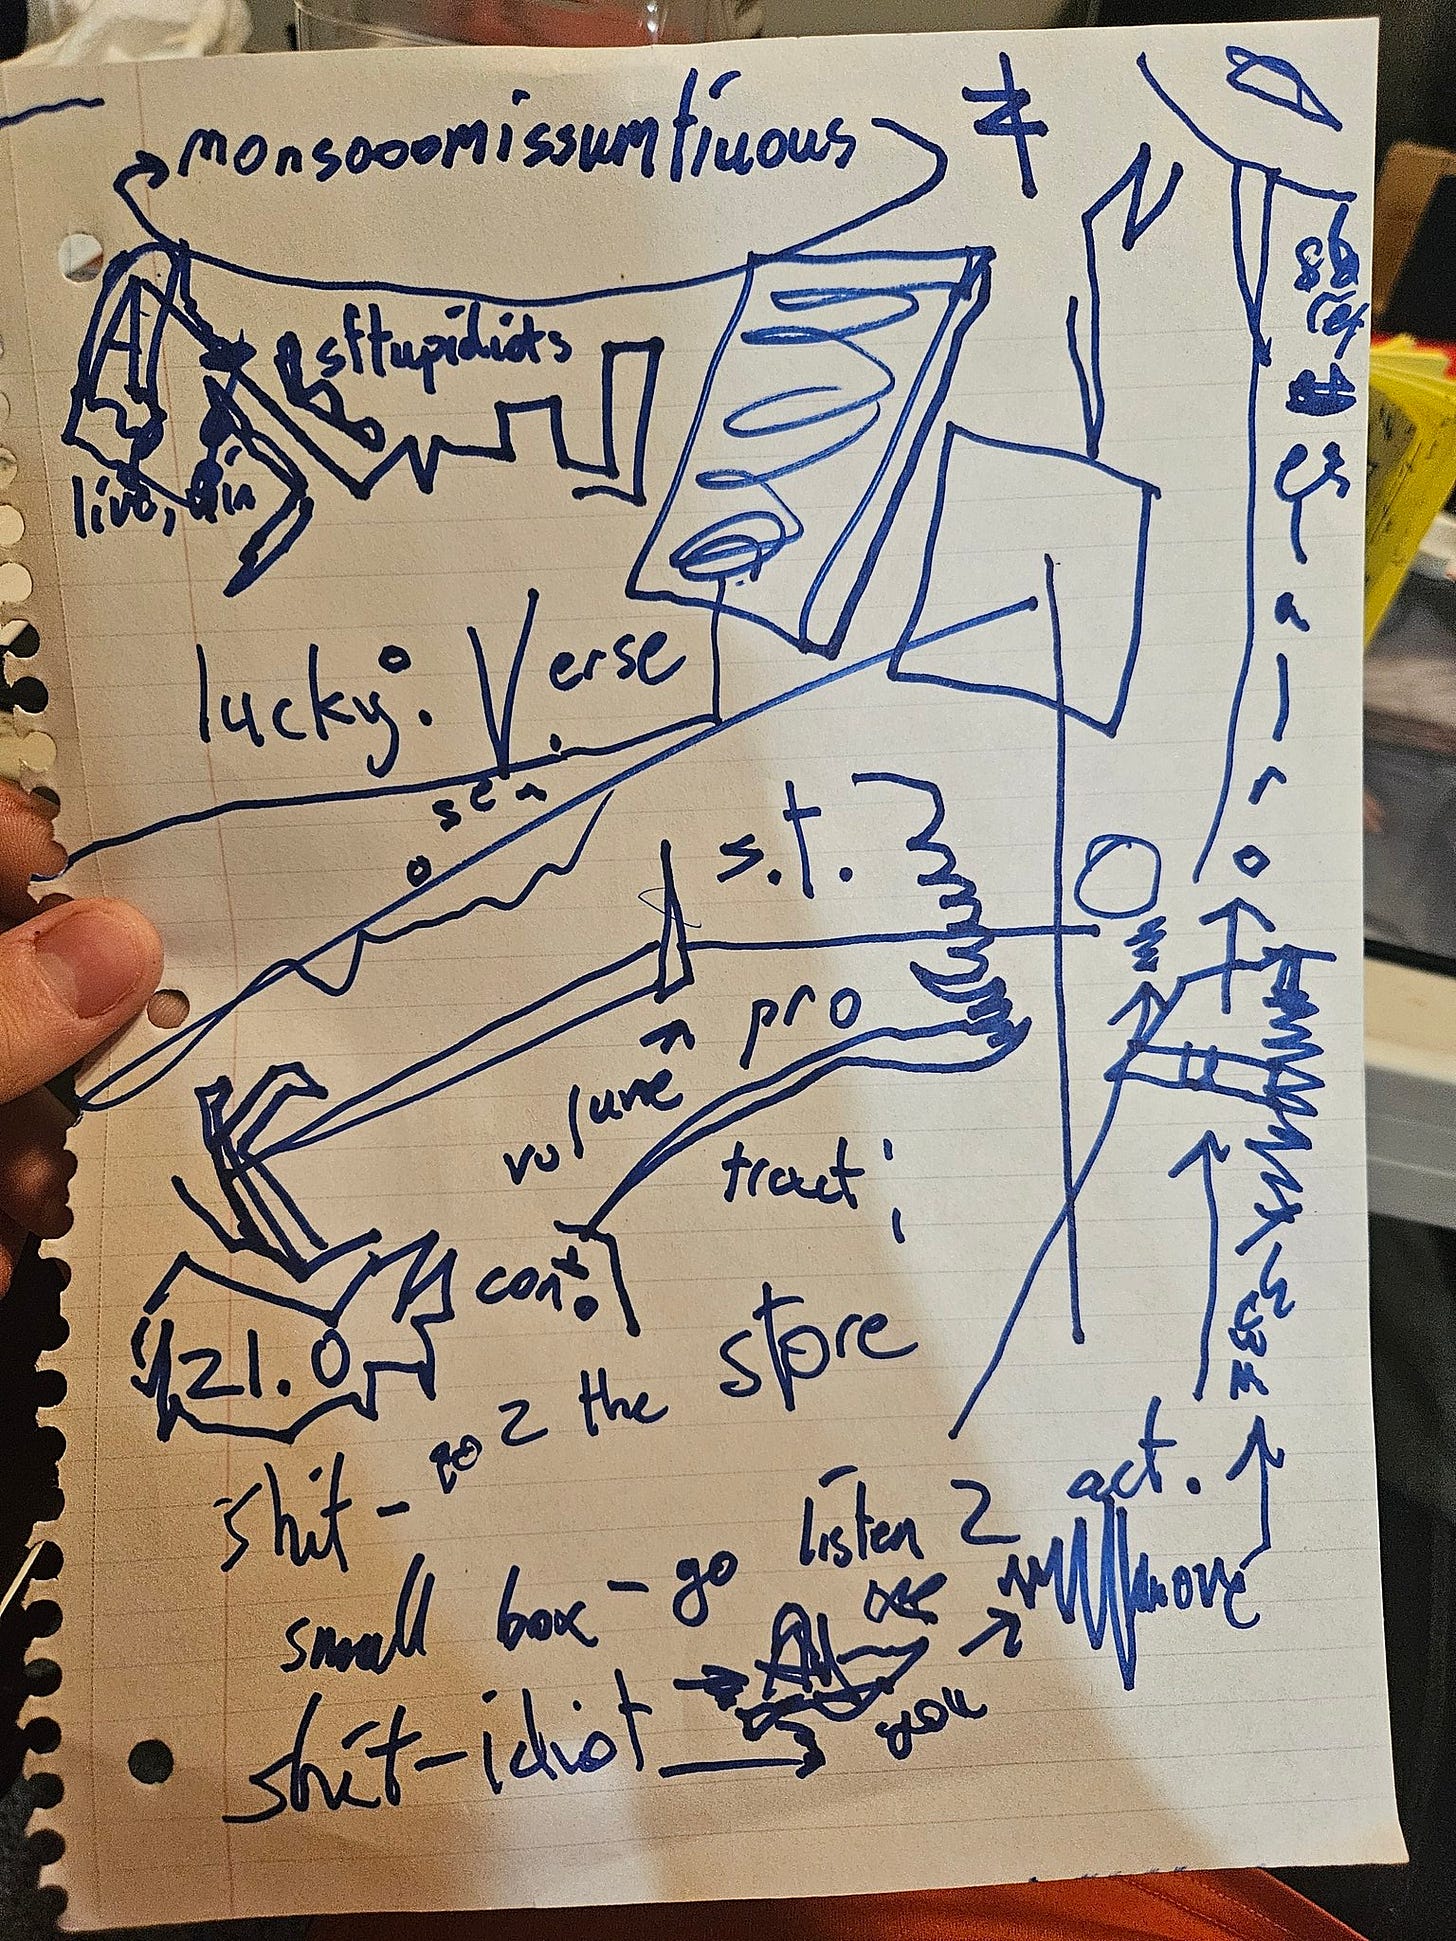 monsooomissumtiuous
sftupidiots
livo,
lucky: Verse
sea
s.t.
pro
volume
tract
con
21.0
go 2 the store
shit -
act.
small box - go listen 2
move
shit - idiot
you
a
l
r
o